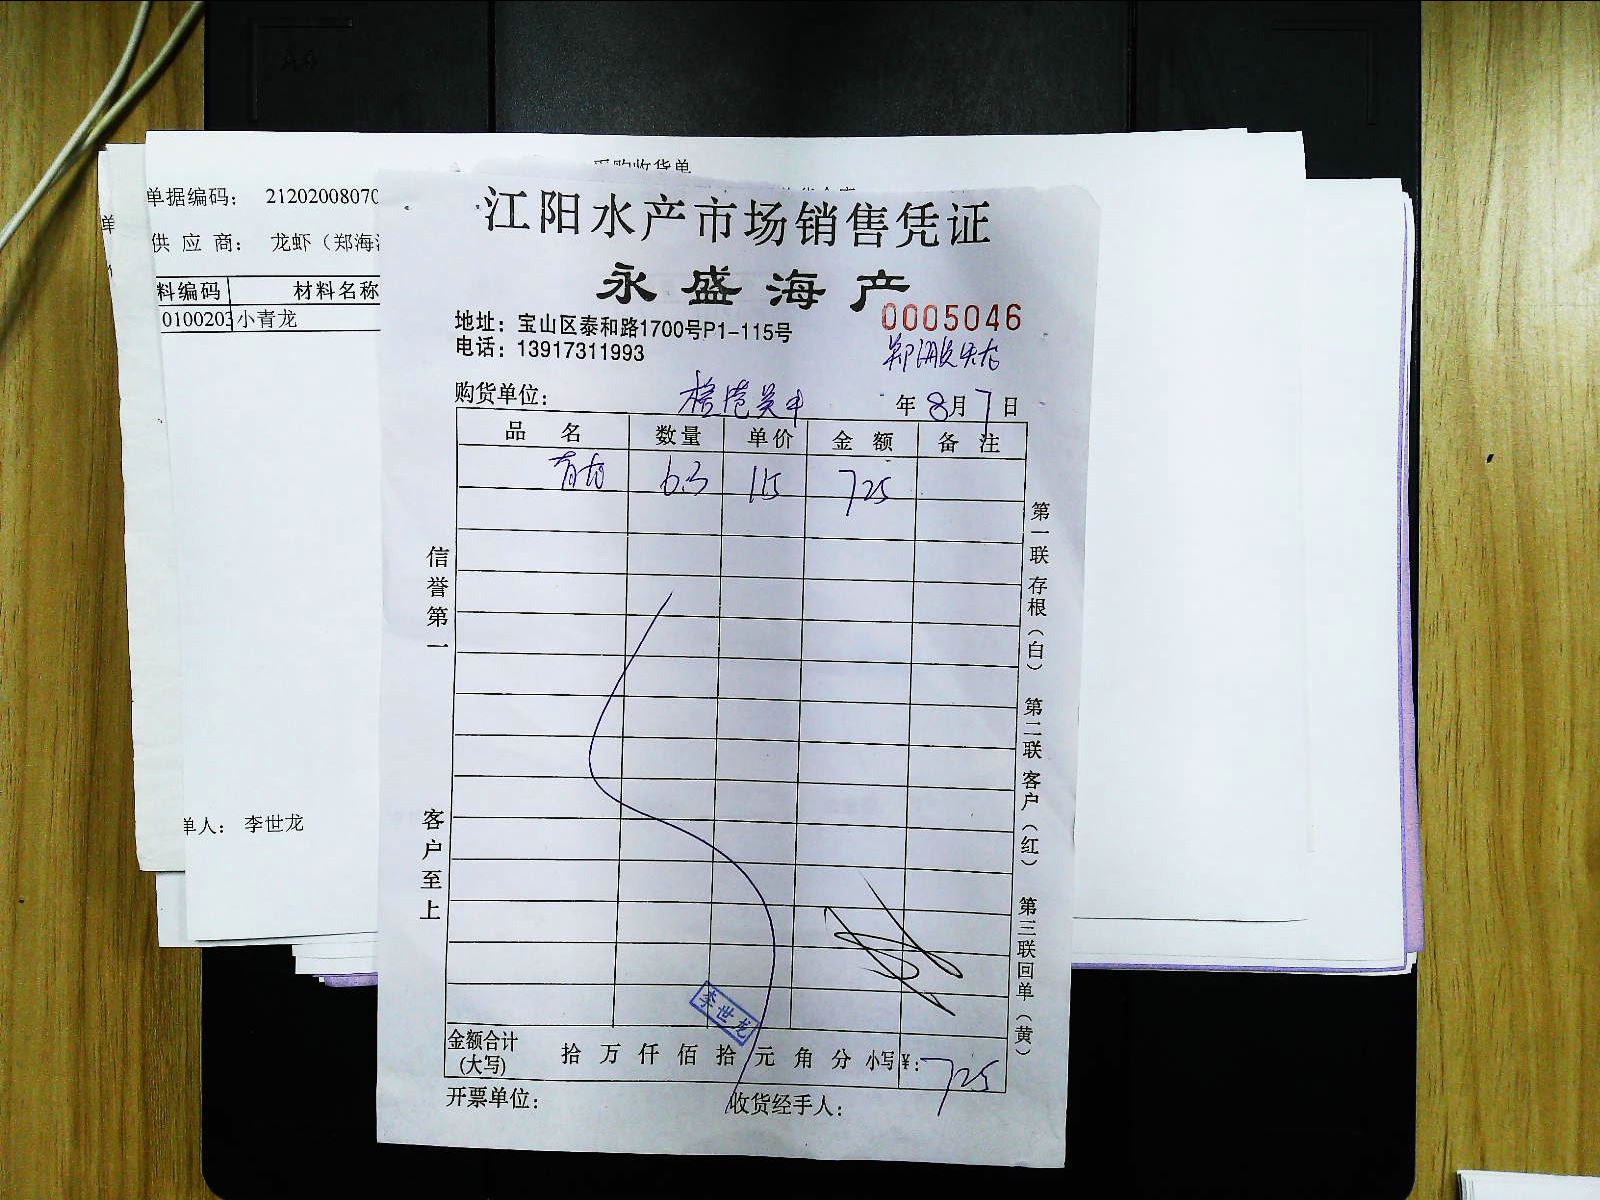 采购收货单
单据编码： 2120200807
供 应 商： 龙虾（郑海
料编码 材料名称
0100203 小青龙
单人： 李世龙
江阳水产市场销售凭证
永盛海产
0005046
地址：宝山区泰和路1700号P1-115号
电话：13917311993
购货单位：
年 8月 7日
品 名 数量 单价 金 额 备 注
青龙 6.3 115 725
信誉第一
客户至上
第一联 存根（白） 第二联 客户（红） 第三联 回单（黄）
李世龙
金额合计(大写) 拾 万 仟 佰 拾 元 角 分 小写¥: 725
开票单位： 收货经手人：